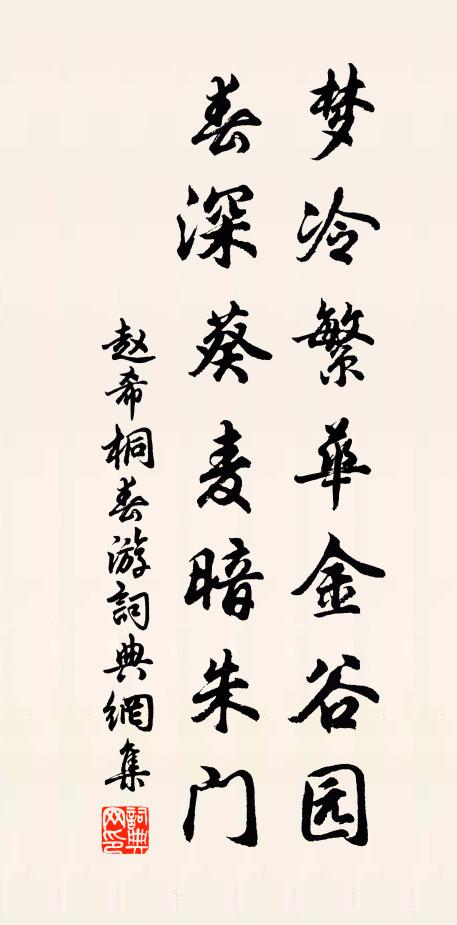 梦冷繁华金谷园
春深葵麦暗朱门
赵希桐春游詞典網集
詞典网印